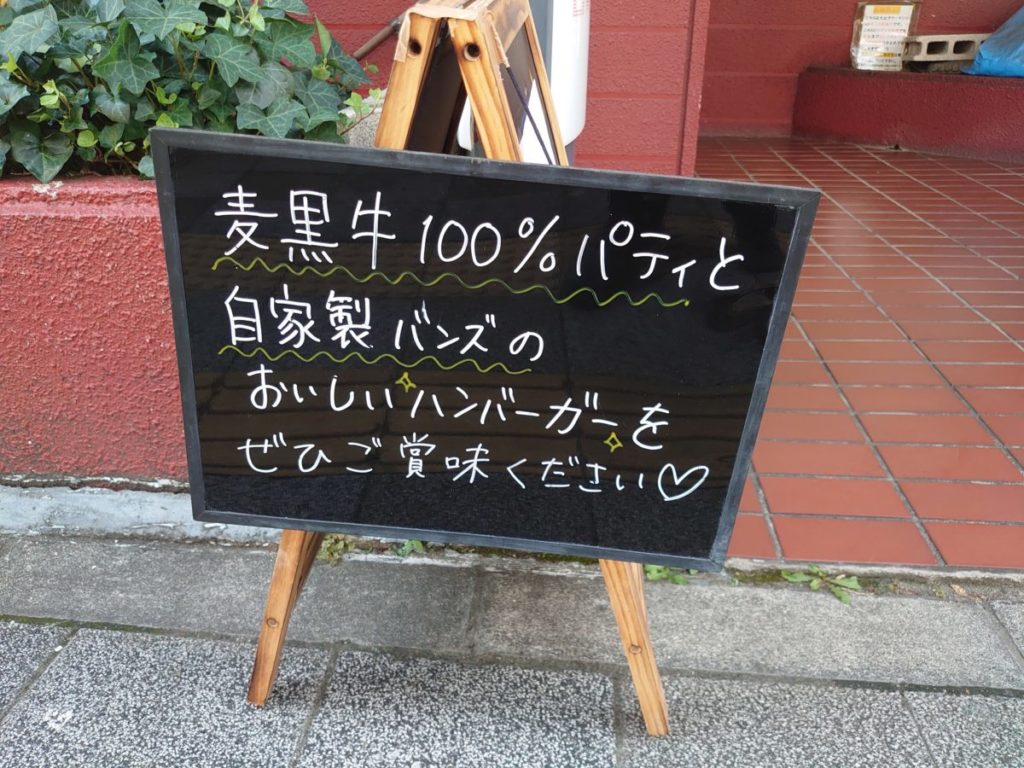 麦黒牛100%パティと
自家製バンズの
おいしいハンバーガーを
ぜひご賞味ください♡